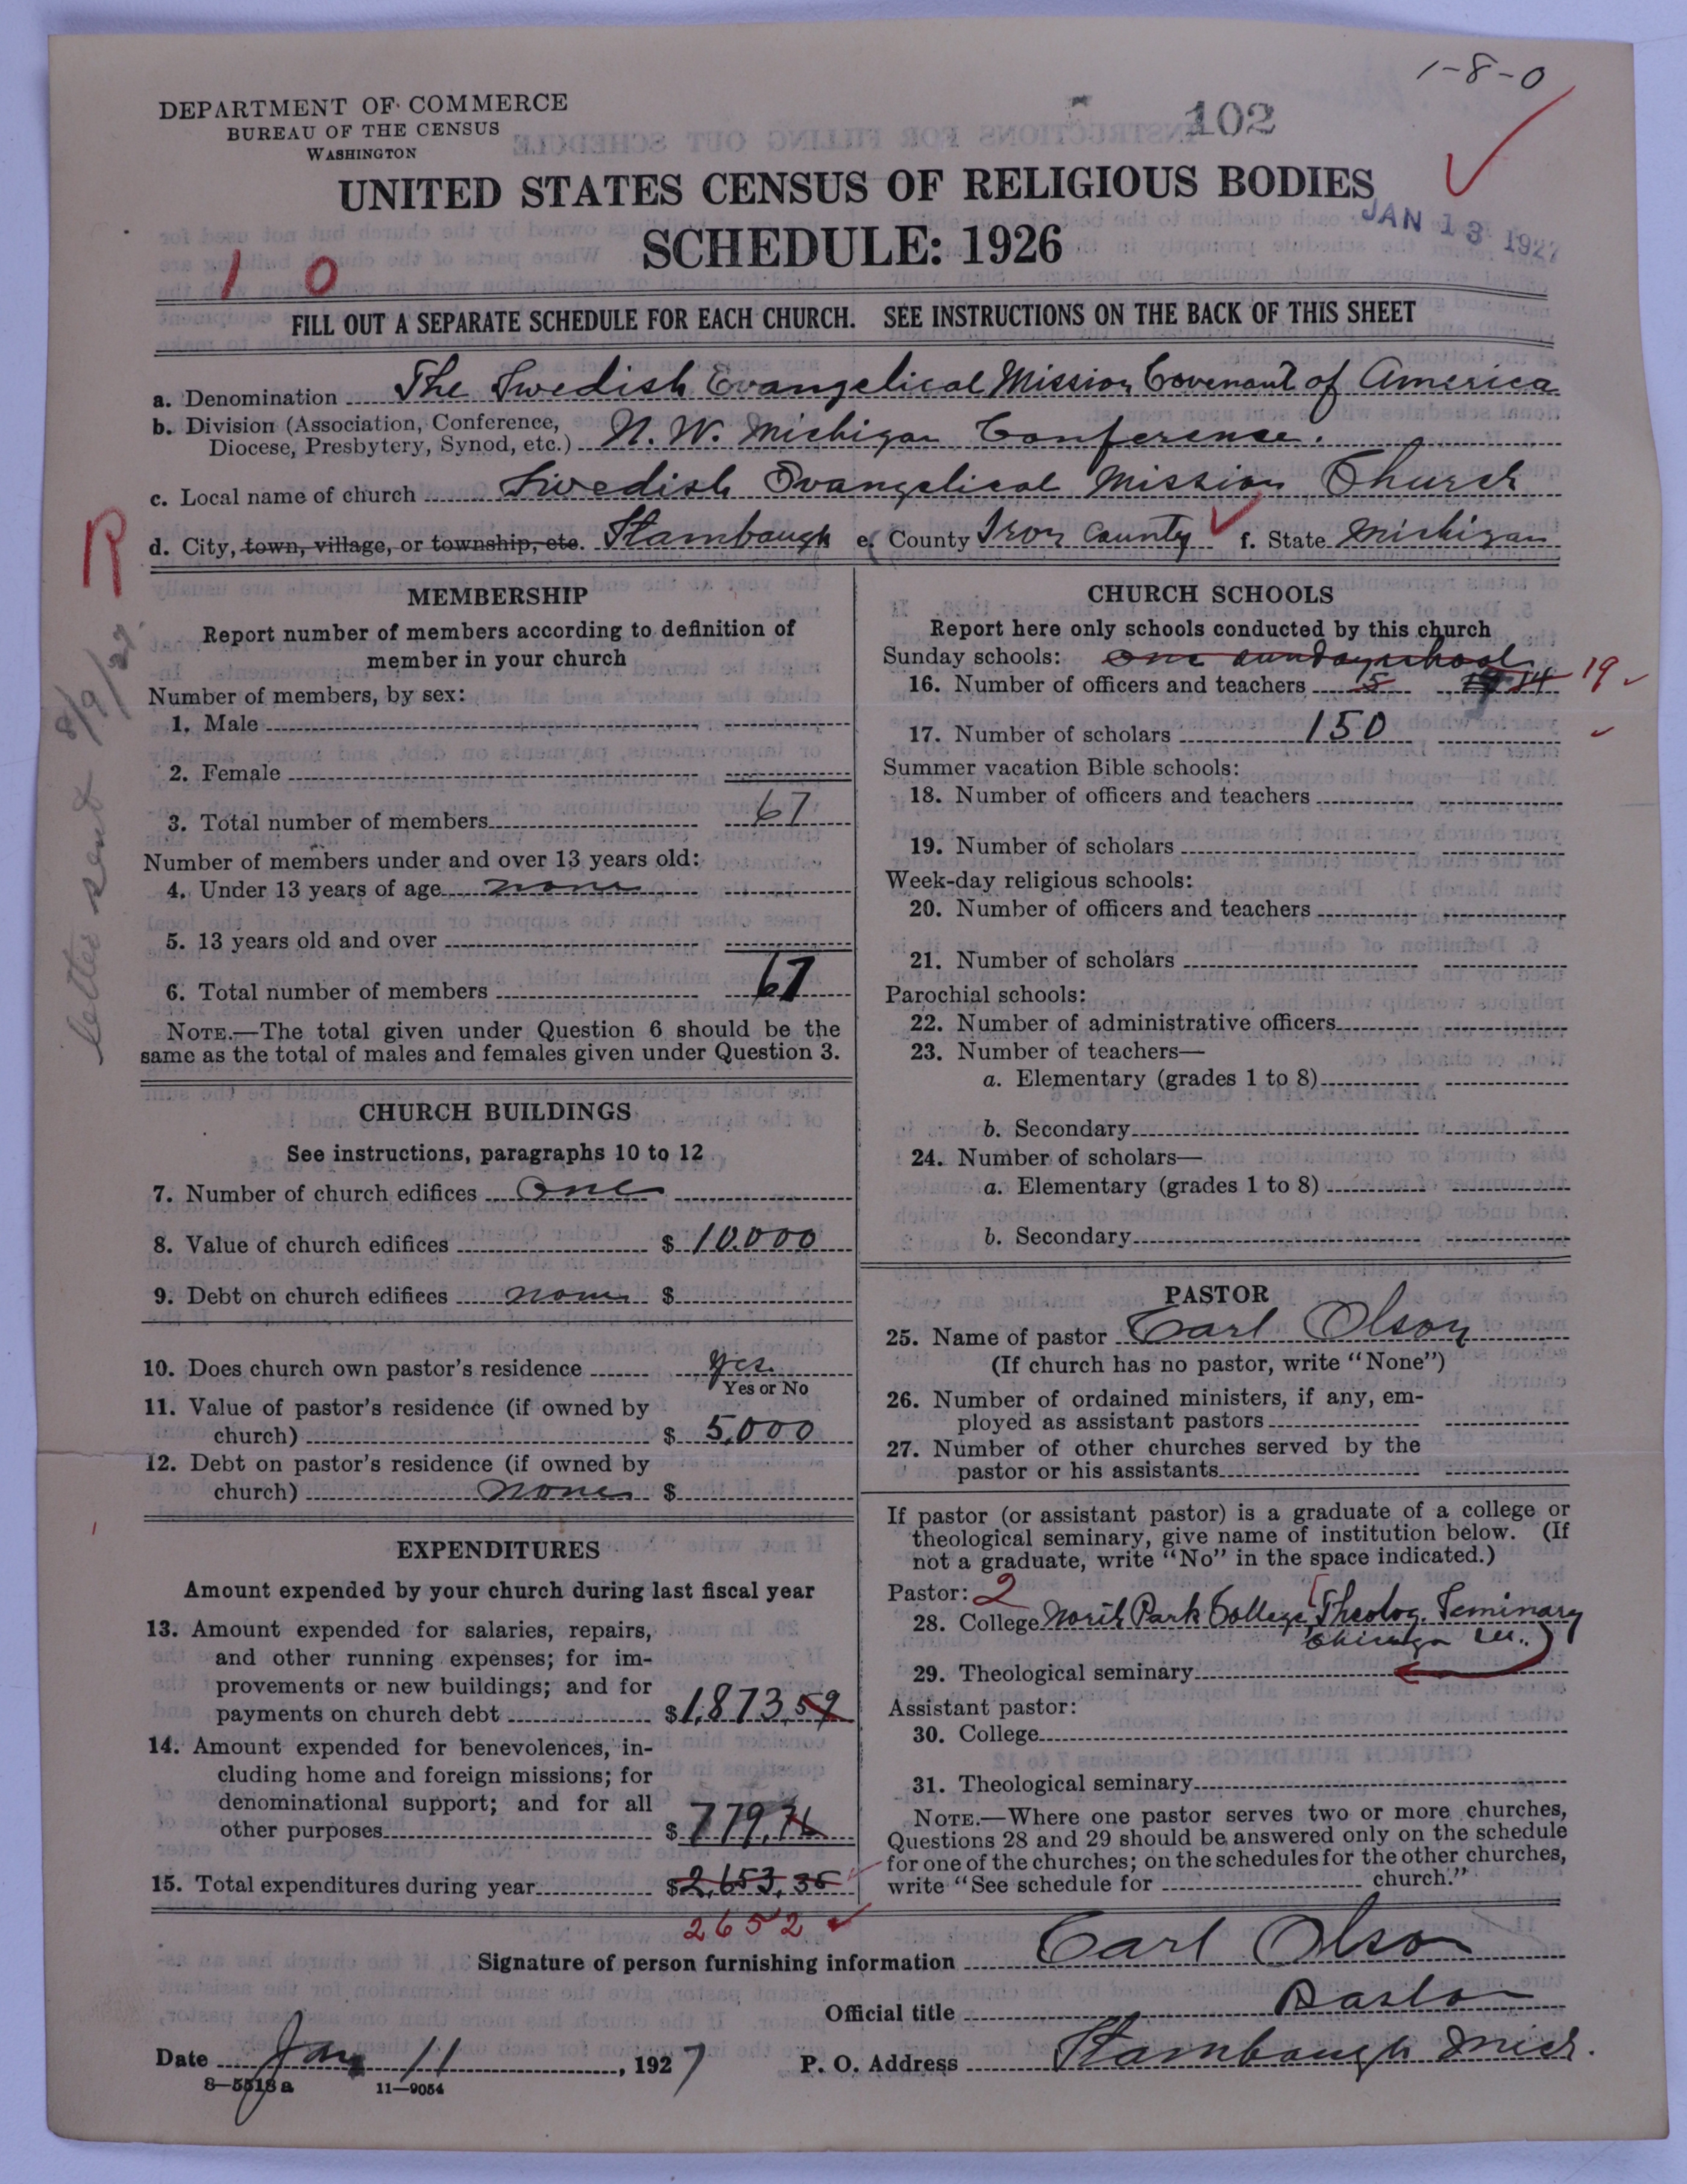 1-8-0
DEPARTMENT OF COMMERCE
BUREAU OF THE CENSUS
WASHINGTON
102
UNITED STATES CENSUS OF RELIGIOUS BODIES
JAN 13 1927
SCHEDULE: 1926
1 0
FILL OUT A SEPARATE SCHEDULE FOR EACH CHURCH. SEE INSTRUCTIONS ON THE BACK OF THIS SHEET
a. Denomination The Swedish Evangelical Mission Covenant of America
b. Division (Association, Conference,
Diocese, Presbytery, Synod, etc.) N. W. Michigan Conference.
c. Local name of church Swedish Evangelical Mission Church
R
d. City, town, village, or township, etc. Stambaugh e. County Iron County f. State Michigan
letter sent 8/9/27
MEMBERSHIP
Report number of members according to definition of
member in your church
Number of members, by sex:
1. Male
2. Female
3. Total number of members 67
Number of members under and over 13 years old:
4. Under 13 years of age none
5. 13 years old and over
6. Total number of members 67
NOTE.—The total given under Question 6 should be the
same as the total of males and females given under Question 3.
CHURCH BUILDINGS
See instructions, paragraphs 10 to 12
7. Number of church edifices One
8. Value of church edifices $ 10,000
9. Debt on church edifices none $
10. Does church own pastor's residence yes
Yes or No
11. Value of pastor's residence (if owned by
church) $ 5,000
12. Debt on pastor's residence (if owned by
church) none $
EXPENDITURES
Amount expended by your church during last fiscal year
13. Amount expended for salaries, repairs,
and other running expenses; for im-
provements or new buildings; and for
payments on church debt $1,873,59
14. Amount expended for benevolences, in-
cluding home and foreign missions; for
denominational support; and for all
other purposes $ 779,76
15. Total expenditures during year $2,653,35
2652
CHURCH SCHOOLS
Report here only schools conducted by this church
Sunday schools: one sunday school
16. Number of officers and teachers 5 14 19
17. Number of scholars 150
Summer vacation Bible schools:
18. Number of officers and teachers
19. Number of scholars
Week-day religious schools:
20. Number of officers and teachers
21. Number of scholars
Parochial schools:
22. Number of administrative officers
23. Number of teachers—
a. Elementary (grades 1 to 8)
b. Secondary
24. Number of scholars—
a. Elementary (grades 1 to 8)
b. Secondary
PASTOR
25. Name of pastor Carl Olson
(If church has no pastor, write "None")
26. Number of ordained ministers, if any, em-
ployed as assistant pastors
27. Number of other churches served by the
pastor or his assistants
If pastor (or assistant pastor) is a graduate of a college or
theological seminary, give name of institution below. (If
not a graduate, write "No" in the space indicated.)
Pastor: 2
28. College North Park College, Theolog. Seminary
Chicago Ill.
29. Theological seminary
Assistant pastor:
30. College
31. Theological seminary
NOTE.—Where one pastor serves two or more churches,
Questions 28 and 29 should be answered only on the schedule
for one of the churches; on the schedules for the other churches,
write "See schedule for church."
Signature of person furnishing information Carl Olson
Official title Pastor
Date Jan 11, 1927 P. O. Address Stambaugh Mich.
8—5518 a 11—9054